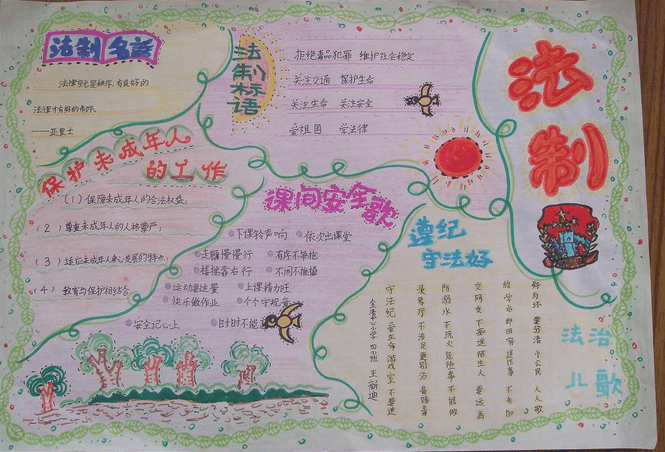 法制名言
法律就是秩序,有良好的
法律才有好的秩序。
——亚里士
法制标语
拒绝毒品犯罪 维护社会稳定
关注交通 保护生命
关注生命 关注安全
爱祖国 学法律
法制
保护未成年人
的工作
(1)保障未成年人的合法权益;
(2)尊重未成年人的人格尊严;
(3)适应未成年人身心发展的特点;
(4)教育与保护相结合
课间安全歌
下课铃声响 依次出课堂
走廊慢慢行 有序不争抢
楼梯靠右行 不闹不推搡
运动要适量 上课精力旺
快乐做作业 个个守规章
安全记心上 时时不能忘
遵纪
守法好
法治
儿歌
好与坏 要分清 小公民 人人敬
放学后 即回家 进坏事 不参加
交网友 不痴迷 陌生人 要远离
防溺水 不玩火 危险事 不能做
录像厅 不涉足 更别忘
守法纪 爱生命 游戏室 不要进
小学 四班 王